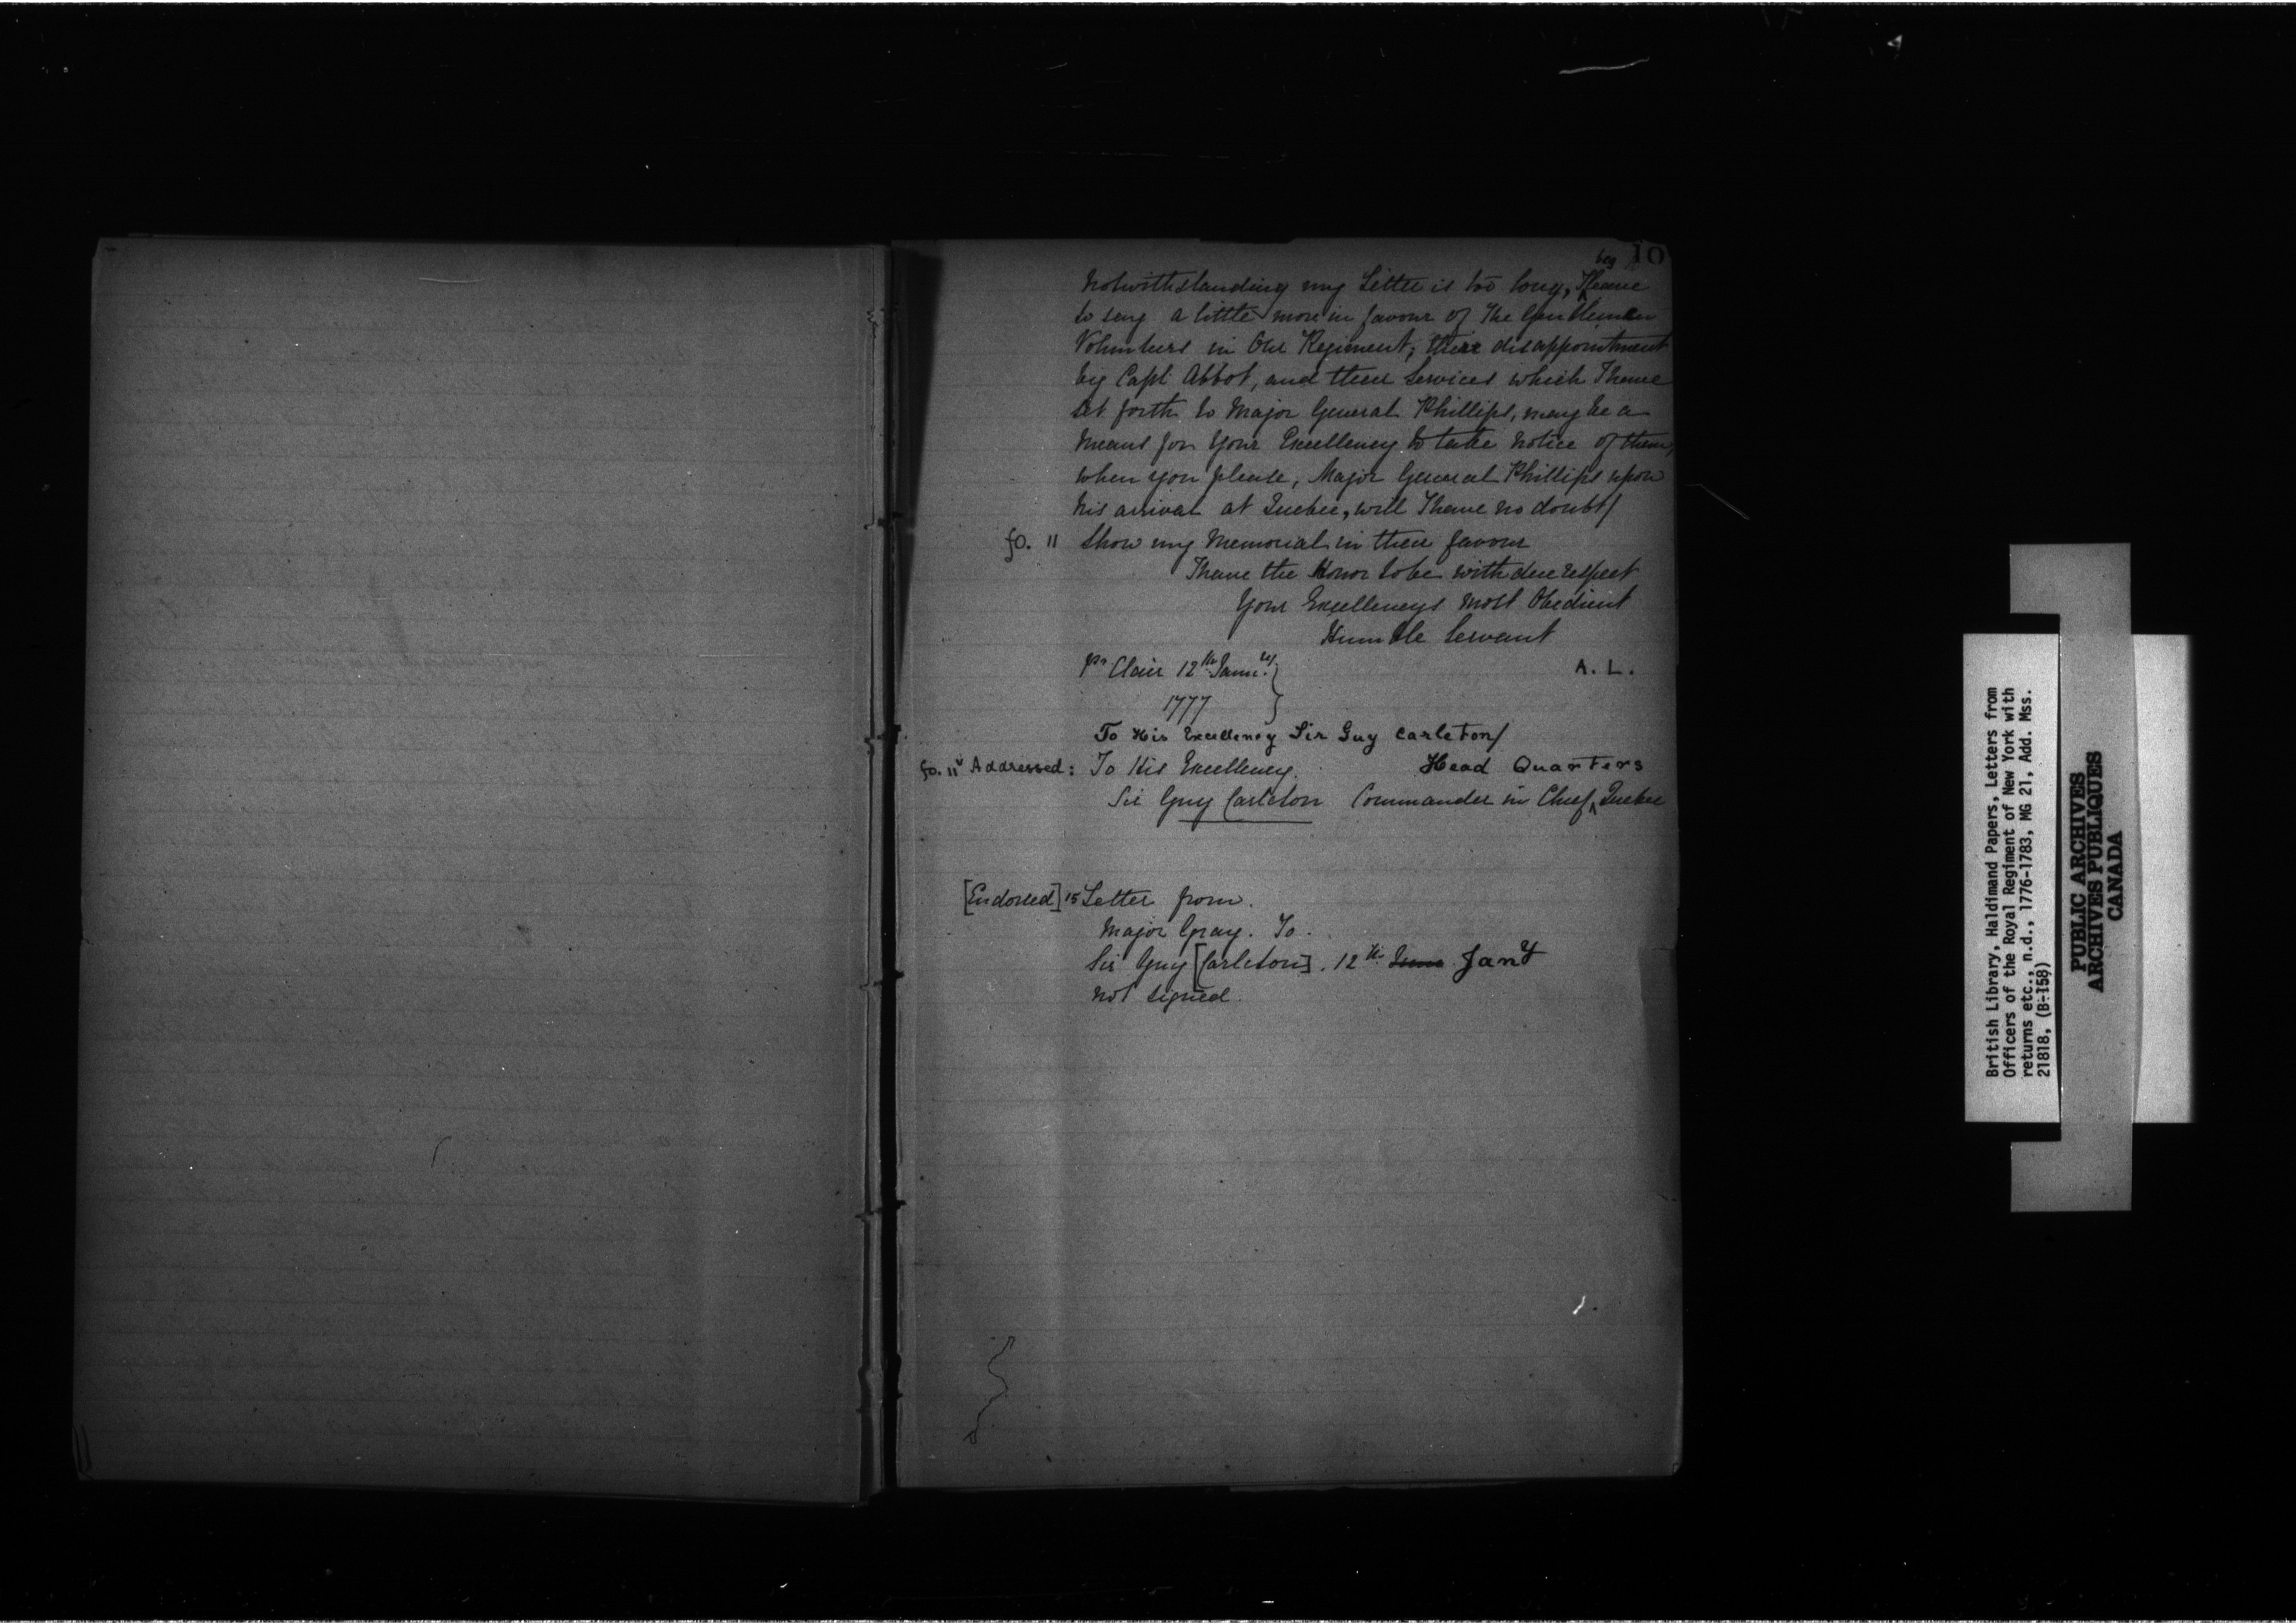 10
beg
Notwithstanding my Letter is too long, I leave
to say a little more in favour of The Gentlemen
Volunteers in Our Regiment, their disappointment
by Capt Abbot, and their Services which I have
Set forth to Major General Phillips, may be a
Means for Your Excellency to take notice of them,
when you please, Major General Phillips upon
his arrival at Quebec, will I have no doubt/
fo. 11 Show my Memorial in their favour
I have the Honor to be with due respect
Your Excellencys Most Obedient
Humble Servant
Pt Clair 12th Janry. } A. L.
1777 }
To His Excellency Sir Guy Carleton/
fo. 11v Addressed: To His Excellency. Head Quarters
Sir Guy Carleton Commander in Chief, ^ Quebec
[Endorsed] 15 Letter from.
Major Gray. To.
Sir Guy [Carleton]. 12th June Jany
not signed.
British Library, Haldimand Papers, Letters from
Officers of the Royal Regiment of New York with
returns etc., n.d., 1776-1783, MG 21, Add. Mss.
21818, (B-158)
PUBLIC ARCHIVES
ARCHIVES PUBLIQUES
CANADA